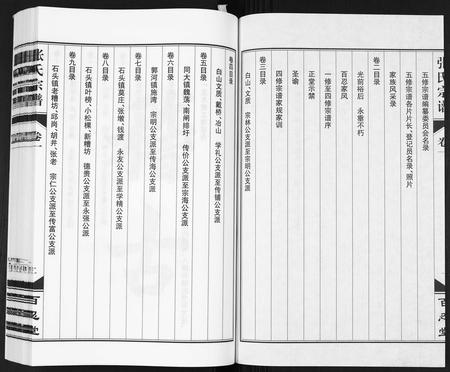 张氏宗谱
卷一
百忍堂
五修宗谱编纂委员会名录
五修宗谱各片片长、登记员名录、照片
家族风采录
卷二目录
光前裕后 永垂不朽
百忍家风
一修至四修宗谱序
正堂示禁
圣谕
四修宗谱家规家训
卷三目录
白山、文质 宗林公支派至宗明公支派
卷四目录
白山、文质、戴桥、冶山 学礼公支派至传铺公支派
卷五目录
同大镇魏荡、南闸排圩 传价公支派至宗海公支派
卷六目录
郭河镇施湾 宗明公支派至传海公支派
卷七目录
石头镇莫庄、张墩、钱渡 永友公支派至学精公支派
卷八目录
石头镇叶榜、小松棵、新糟坊 德贵公支派至永强公派
卷九目录
石头镇老糟坊、邱岗、胡井、张老 宗仁公支派至传富公支派
张氏宗谱
卷一
百忍堂